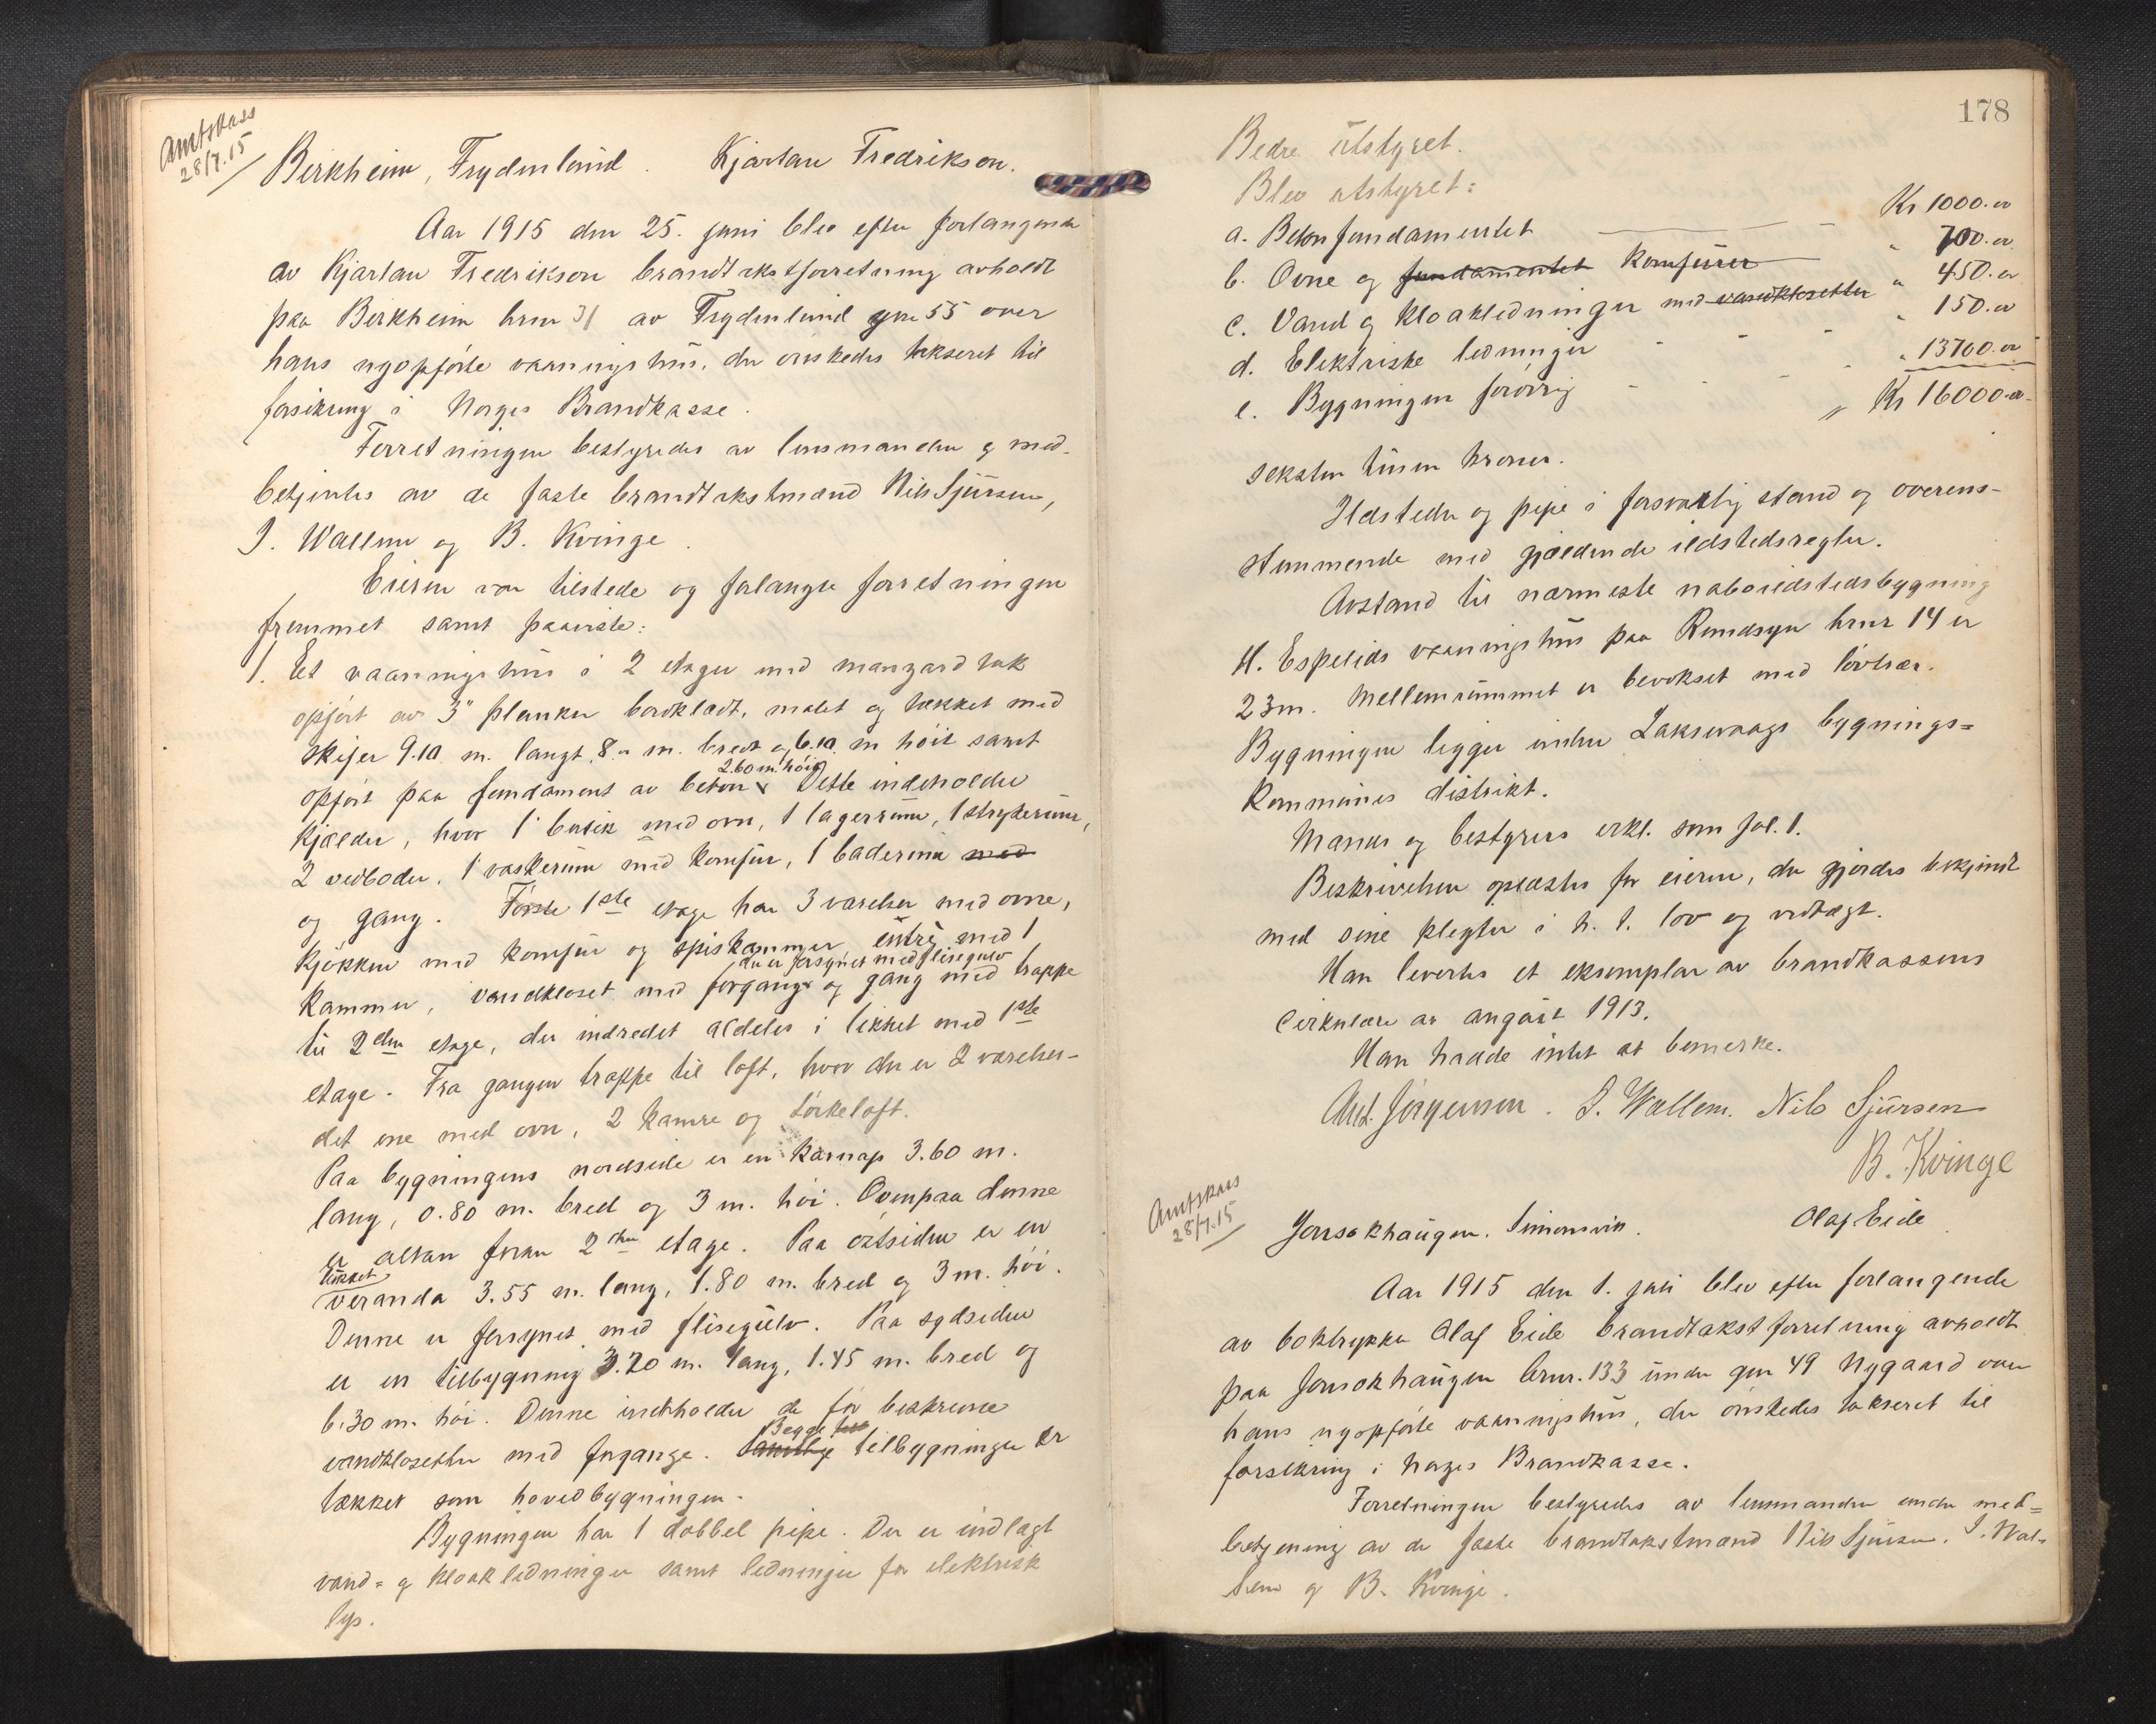 Amtskass
28/7.15
Birkheim, Frydenlund. Kjartan Fredrikson.
Aar 1915 den 25. juni blev efter forlangende
av Kjartan Fredrikson brandtakstforretning avholdt
paa Birkheim brnr 31 av Frydenlund gnr 55 over
hans nyopførte vaaningshus, der ønskedes takseret til
forsikring i Norges Brandkasse.
Forretningen bestyredes av lensmanden og med-
betjentes av de faste brandtakstmænd Nils Sjursen,
J. Wallem og B. Kvinge.
Eieren var tilstede og forlangte forretningen
fremmet samt paaviste:
1. Et vaaningshus i 2 etager med manzard tak
opført av 3" planker bordklædt, malet og tækket med
skifer 9.10 m. langt, 8.  m. bredt og 6.10 m høit samt
2.60 m. høit
opført paa fundament av beton x Dette indeholder
Kjælder, hvor 1 butik med ovn, 1 lagerrum, 1 strykerum,
2 vedboder, 1 vaskerum med komfur, 1 baderum med
og gang. Første 1ste etage har 3 værelser med ovne,
Kjøkken med komfur og spiskammer, entre med 1
der er forsynet med flisegulv
Kammer, vandkloset med forgang x og gang med trappe
til 2den etage, der indredet aldeles i likhet med 1ste
etage. Fra gangen trappe til loft, hvor der er 2 værelser-
det ene med ovn, 2 kamre og tørkeloft.
Paa bygningens nordside er en karnap 3.60 m.
lang, 0.80 m. bred og 3 m. høi. Ovenpaa denne
er altan foran 2den etage. Paa østsiden er en
lukket
veranda 3.55 m. lang, 1.80 m. bred og 3 m. høi.
Denne er forsynet med flisegulv. Paa sydsiden
er en tilbygning 3.20 m. lang, 1.45 m. bred og
6.30 m. høi. Denne indeholder de før beskrevne
Begge
vandklosetter med forgange. Samtlige tilbygninger er
tækket som hovedbygningen.
Bygningen har 1 dobbel pipe. Der er indlagt
vand= og kloakledninger samt ledninger for elektrisk
lys.
178
Bedre utstyret.
Blev utstyret:
a. Betonfundamentet Kr 1000.00
b. Ovne og fundamentet Komfurer " 700.00
c. Vand og kloakledninger med vandklosetter " 450.00
d. Elektriske ledninger " 150.00
e. Bygningen forøvrig " 13700.00
Kr 16000.00
seksten tusen kroner.
Ildsteder og pipe i forsvarlig stand og overens-
stemmende med gjældende ildstedsregler.
Avstand til nærmeste naboildstedsbygning
H. Espelids vaaningshus paa Rundsyn brnr 14 er
23 m. Mellemrummet er bevokset med løvtrær.
Bygningen ligger under Laksevaags bygnings=
Kommunes distrikt.
Mænds og bestyrers erkl. som fol. 1.
Beskrivelsen oplæstes for eieren, der gjordes bekjendt
med sine pligter i h. t. lov og vedtægt.
Han levertes et eksemplar av brandkassens
Cirkulære av august 1913.
Han hadde intet at bemerke.
And. Jørgensen. J. Wallem. Nils Sjursen
B. Kvinge
Amtskass
28/7.15
Jonsokhaugen. Simonsvik. Olaf Eide
Aar 1915 den 1. juli blev efter forlangende
av boktrykker Olaf Eide brandtakstforretning avholdt
paa Jonsokhaugen brnr. 133 under gnr 49 Nygaard over
hans nyopførte vaaningshus, der ønskedes takseret til
forsikring i Norges Brandkasse.
Forretningen bestyredes av lensmanden under med=
betjening av de faste brandtakstmænd Nils Sjursen, J. Wal-
lem og B. Kvinge.